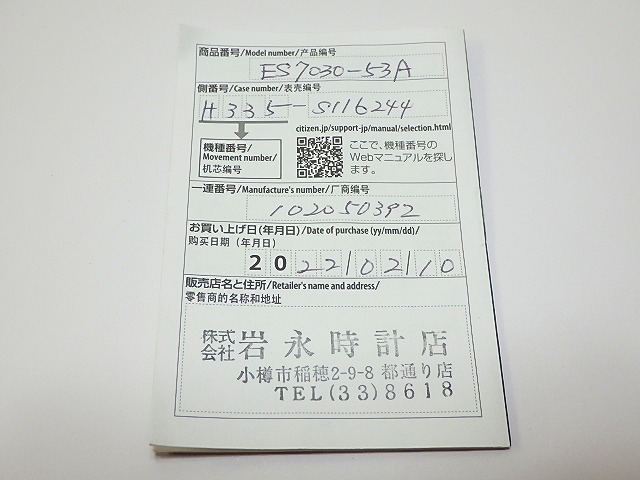 商品番号/Model number/产品编号
ES7030-53A
側番号/Case number/表壳编号
H335-S116244
機種番号/
Movement number/
机芯编号
citizen.jp/support-jp/manual/selection.html
ここで、機種番号の
Webマニュアルを探し
ます。
一連番号/Manufacture's number/厂商编号
102050392
お買い上げ日(年月日)/Date of purchase (yy/mm/dd)/
购买日期 (年月日)
2022/02/10
販売店名と住所/Retailer's name and address/
零售商的名称和地址
株式会社 岩永時計店
小樽市稲穂2-9-8 都通り店
TEL(33)8618